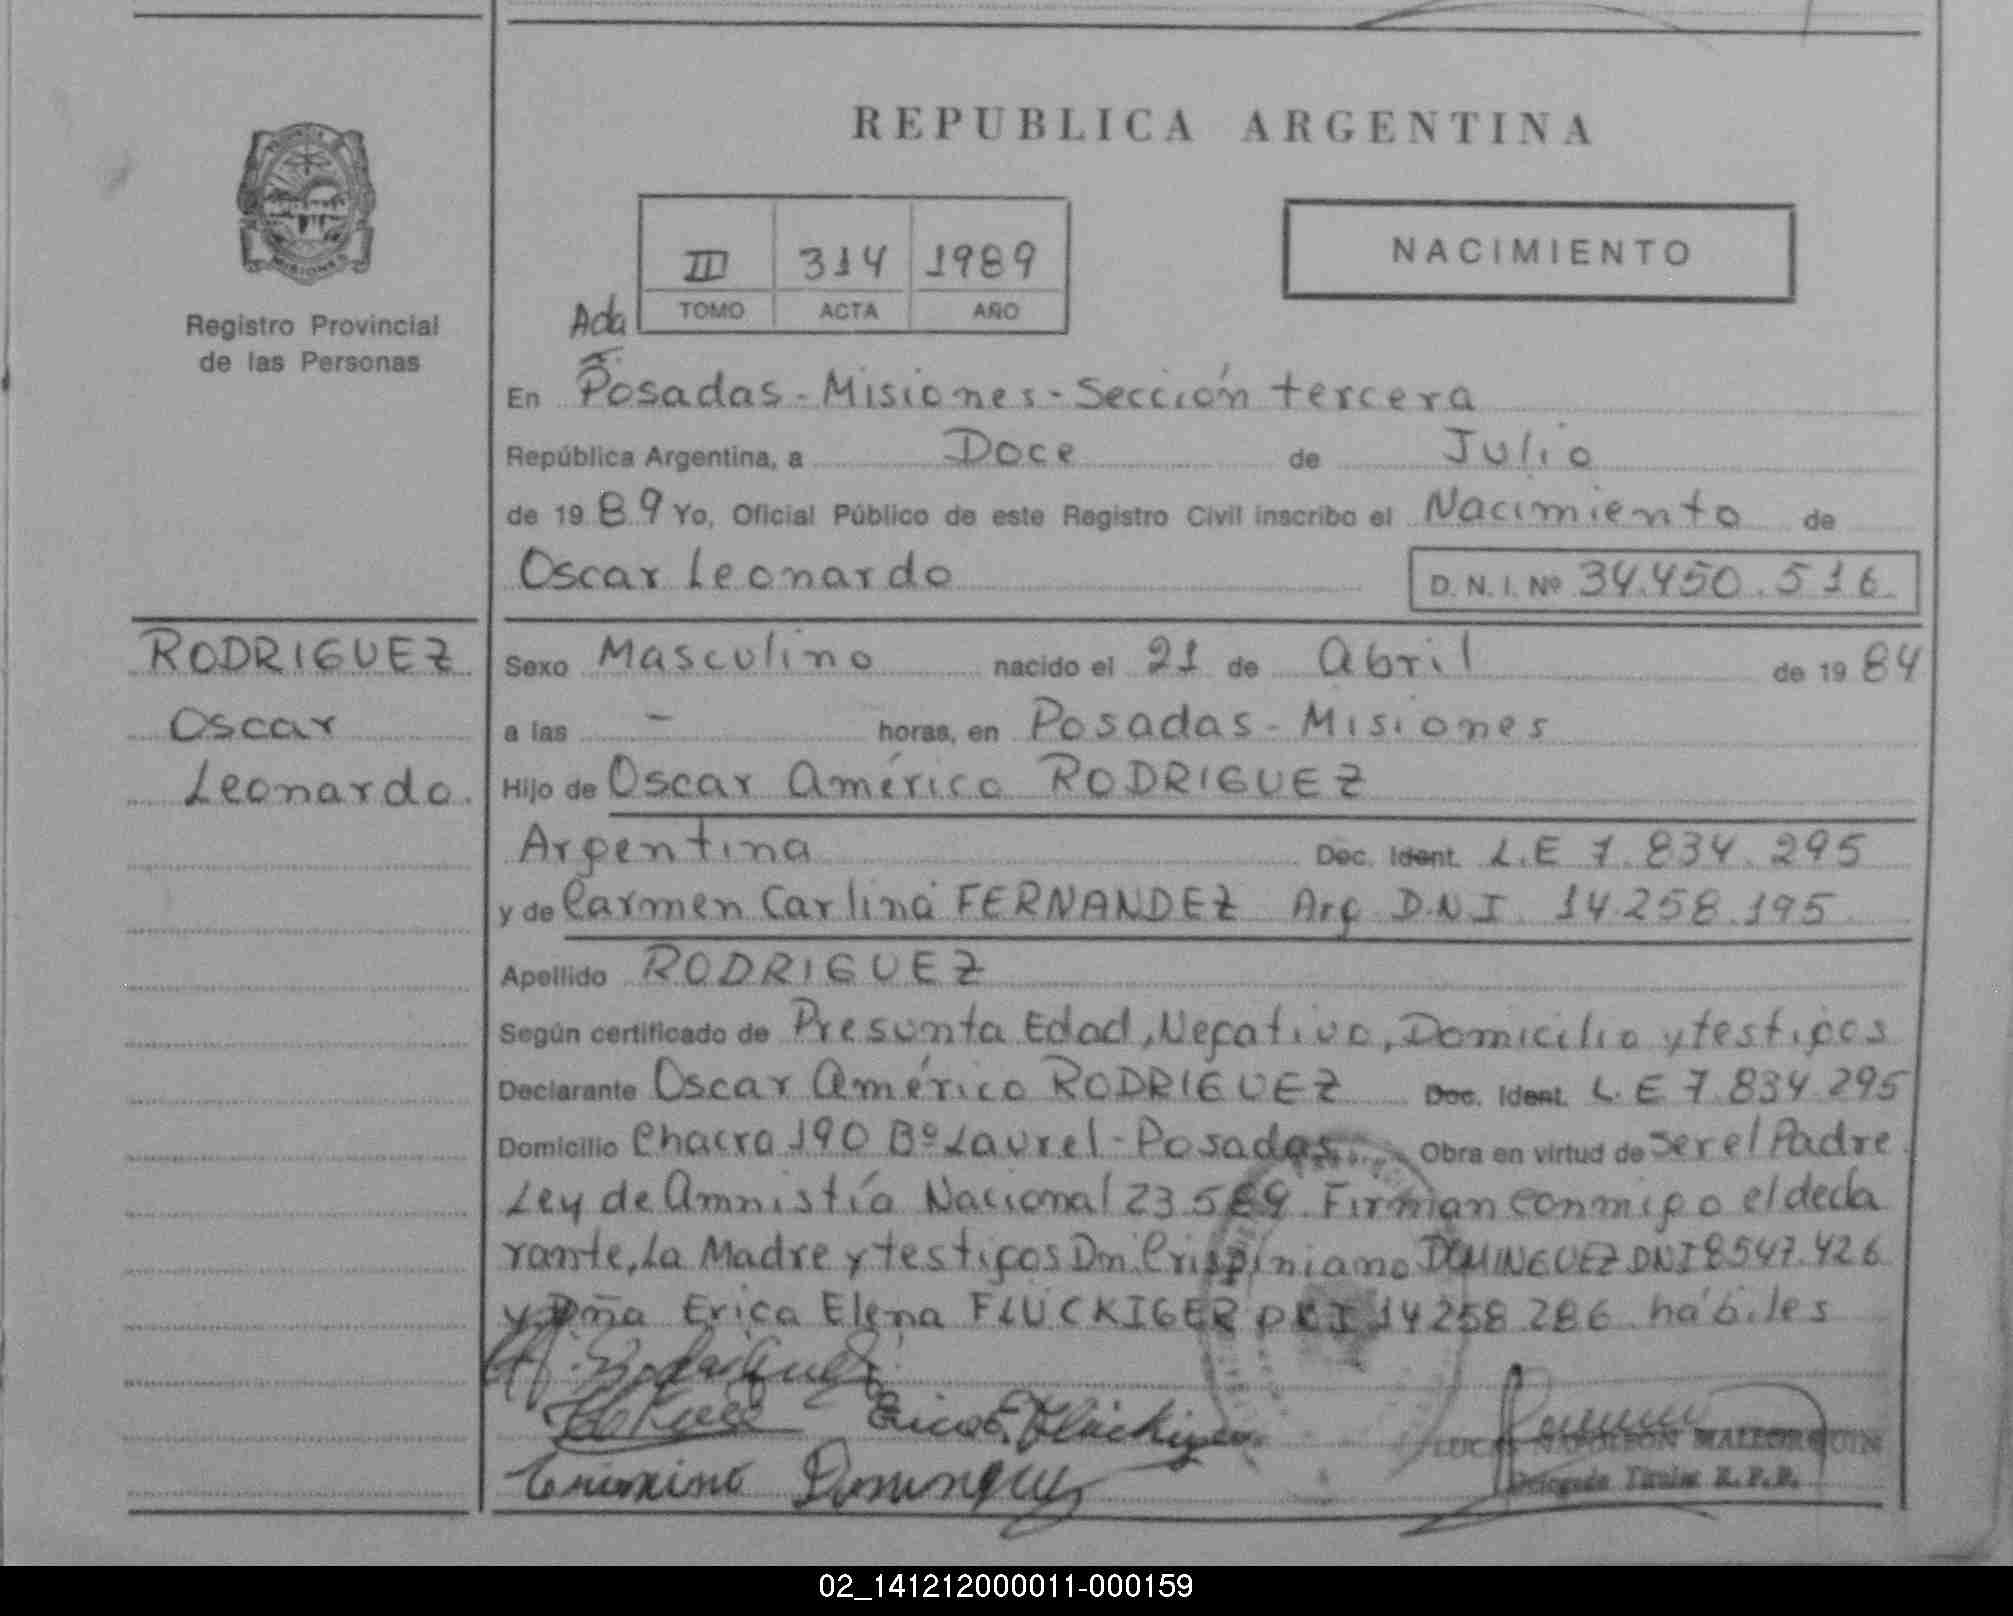 REPUBLICA ARGENTINA
MISIONES
Registro Provincial
de las Personas
III 314 1989
TOMO ACTA AÑO
NACIMIENTO
Ada
En Posadas - Misiones - Sección tercera
República Argentina, a Doce de Julio
de 1989 Yo, Oficial Público de este Registro Civil inscribo el Nacimiento de
Oscar Leonardo D. N. I. Nº 34.450.516.
RODRIGUEZ
Oscar
Leonardo.
Sexo Masculino nacido el 21 de Abril de 1984
a las - horas, en Posadas - Misiones
Hijo de Oscar Américo RODRIGUEZ
Argentina Doc. Ident. L.E 7.834.295
y de Carmen Carlina FERNANDEZ Arg D.N.I. 14.258.195
Apellido RODRIGUEZ
Según certificado de Presunta Edad, Negativo, Domicilio y testigos
Declarante Oscar Américo RODRIGUEZ Doc. Ident. L.E 7.834.295
Domicilio Chacra 190 Bº Laurel - Posadas Obra en virtud de ser el Padre
Ley de Amnistía Nacional 23.589. Firman conmigo el decla
rante, La Madre y testigos Dn. Crispiniano DOMINGUEZ DNI 8547.426
y Dña Erica Elena FLUCKIGER DNI 14258.286 hábiles
Erica E. Flückiger
Dominguez
NAPOLEON MALLORQUIN
Delegado Titular R.P.P.
02_141212000011-000159